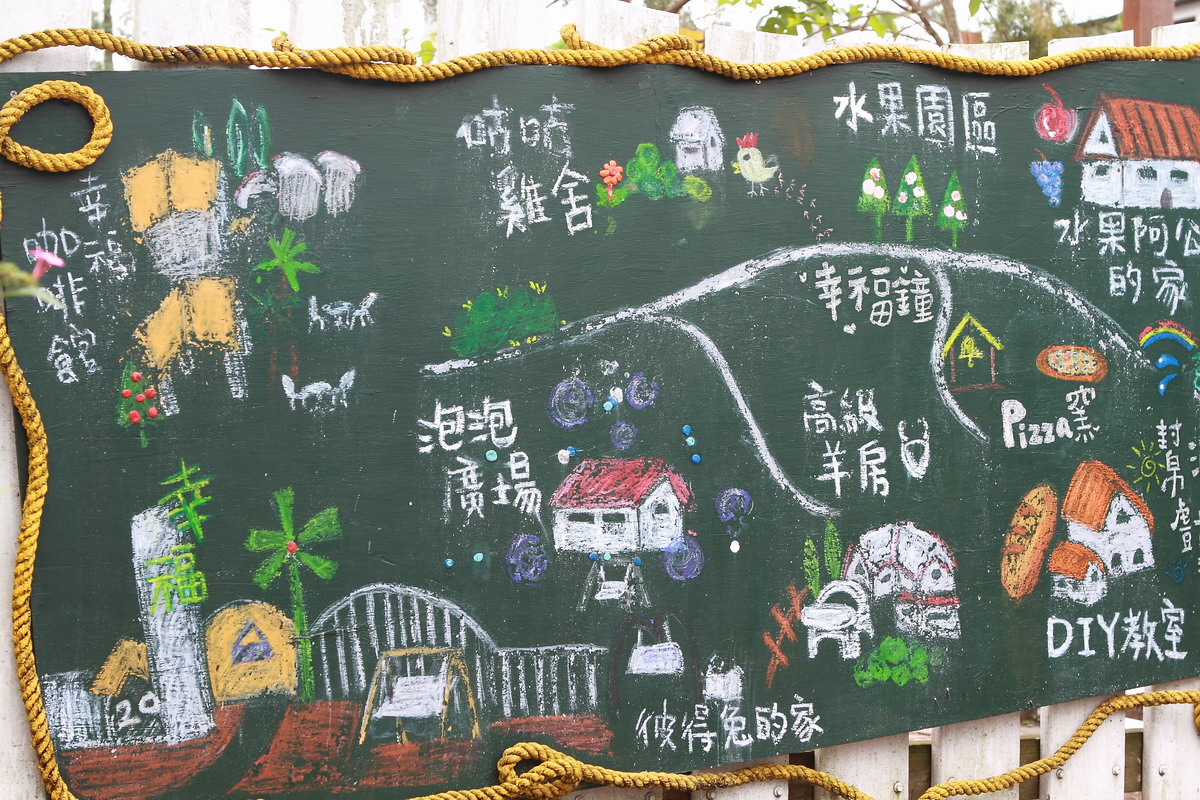 幸福
咖啡館
咕咕
雞舍
水果園區
水果阿公
的家
幸福鐘
Pizza窯
高級
羊房
泡泡
廣場
幸福
20
DIY教室
彼得兔的家